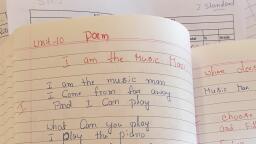 2 Standard
Unit-10 Poem
I am the Music Man
I am the music man
I come from far away
And I Can play
what Can you play
I play the piano
Music Man
choose